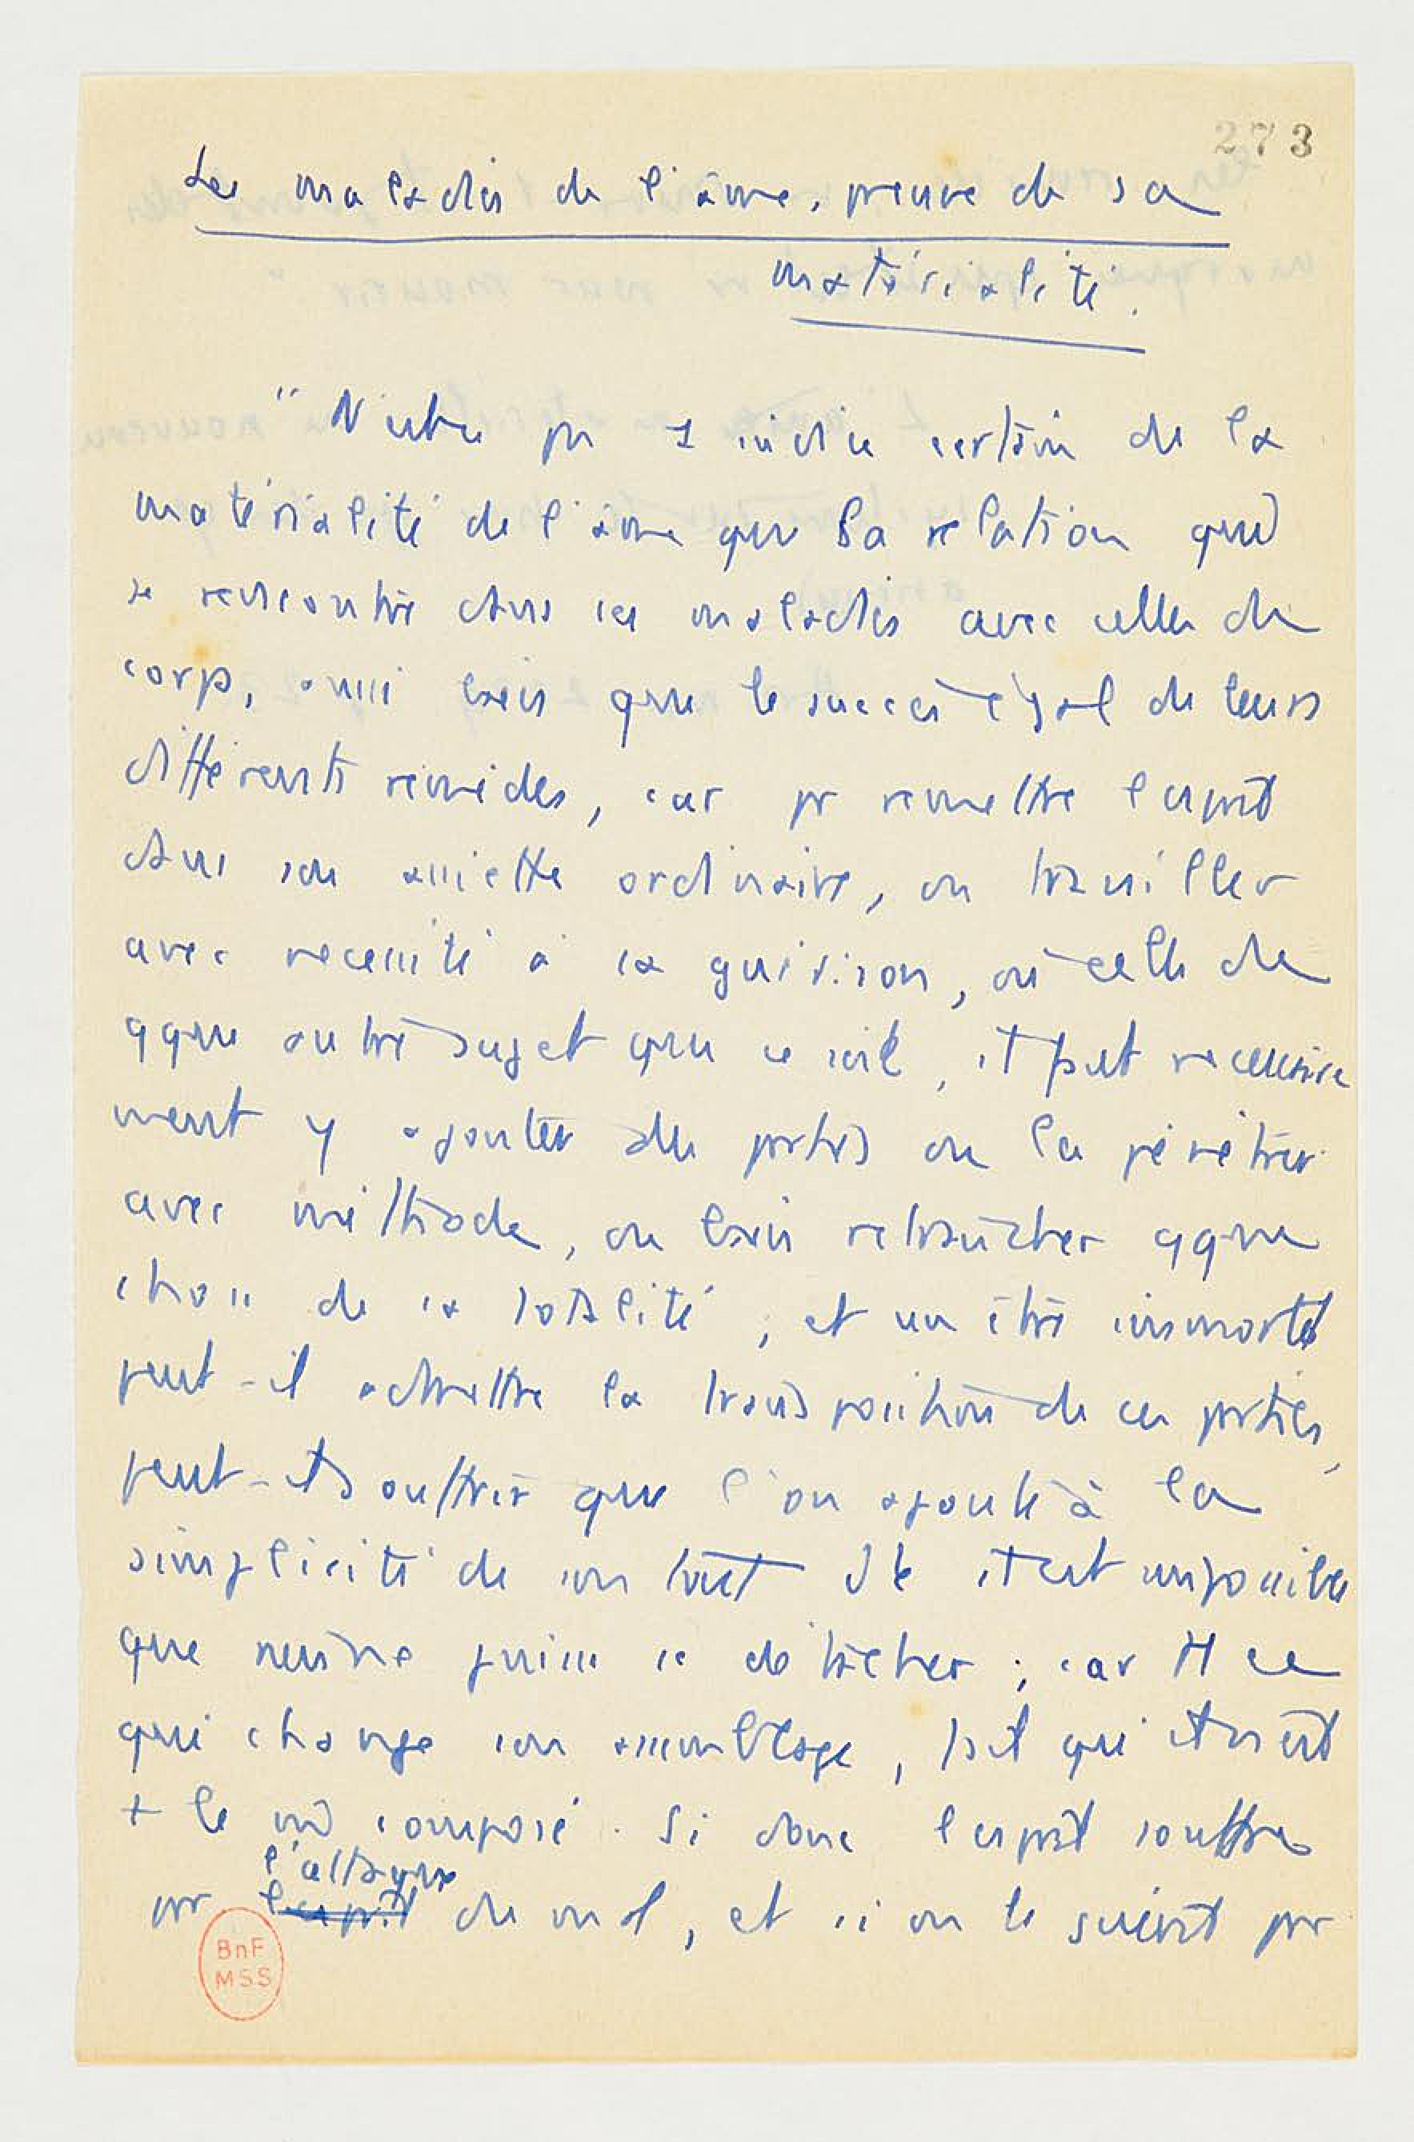 273
Les maladies de l'âme, preuve de sa
matérialité.
"N'est-ce pas 1 indice certain de la
matérialité de l'âme que la relation qui
se rencontre dans ses maladies avec celles du
corps, aussi bien que le succès égal de leurs
différents remèdes, car pr remettre l'esprit
dans son assiette ordinaire, on travailler
avec necessité à sa guérison, où celle de
qque autre sujet que ce soit, il faut necessaire
ment y ajouter des parties ou les pénétrer
avec méthode, ou bien retrancher qque
chose de sa totalité ; et un être immortel
peut-il admettre la transposition de ces parties,
peut-il souffrir que l'on ajoute à la
simplicité de son tout il est impossible
que rien ne puisse se détacher ; car tt ce
qui change son assemblage, fait qu'il n'est
+ le m̂ composé. Si donc l'esprit souffre
par l'attaque du mal, et si on le guérit par
BnF
MSS